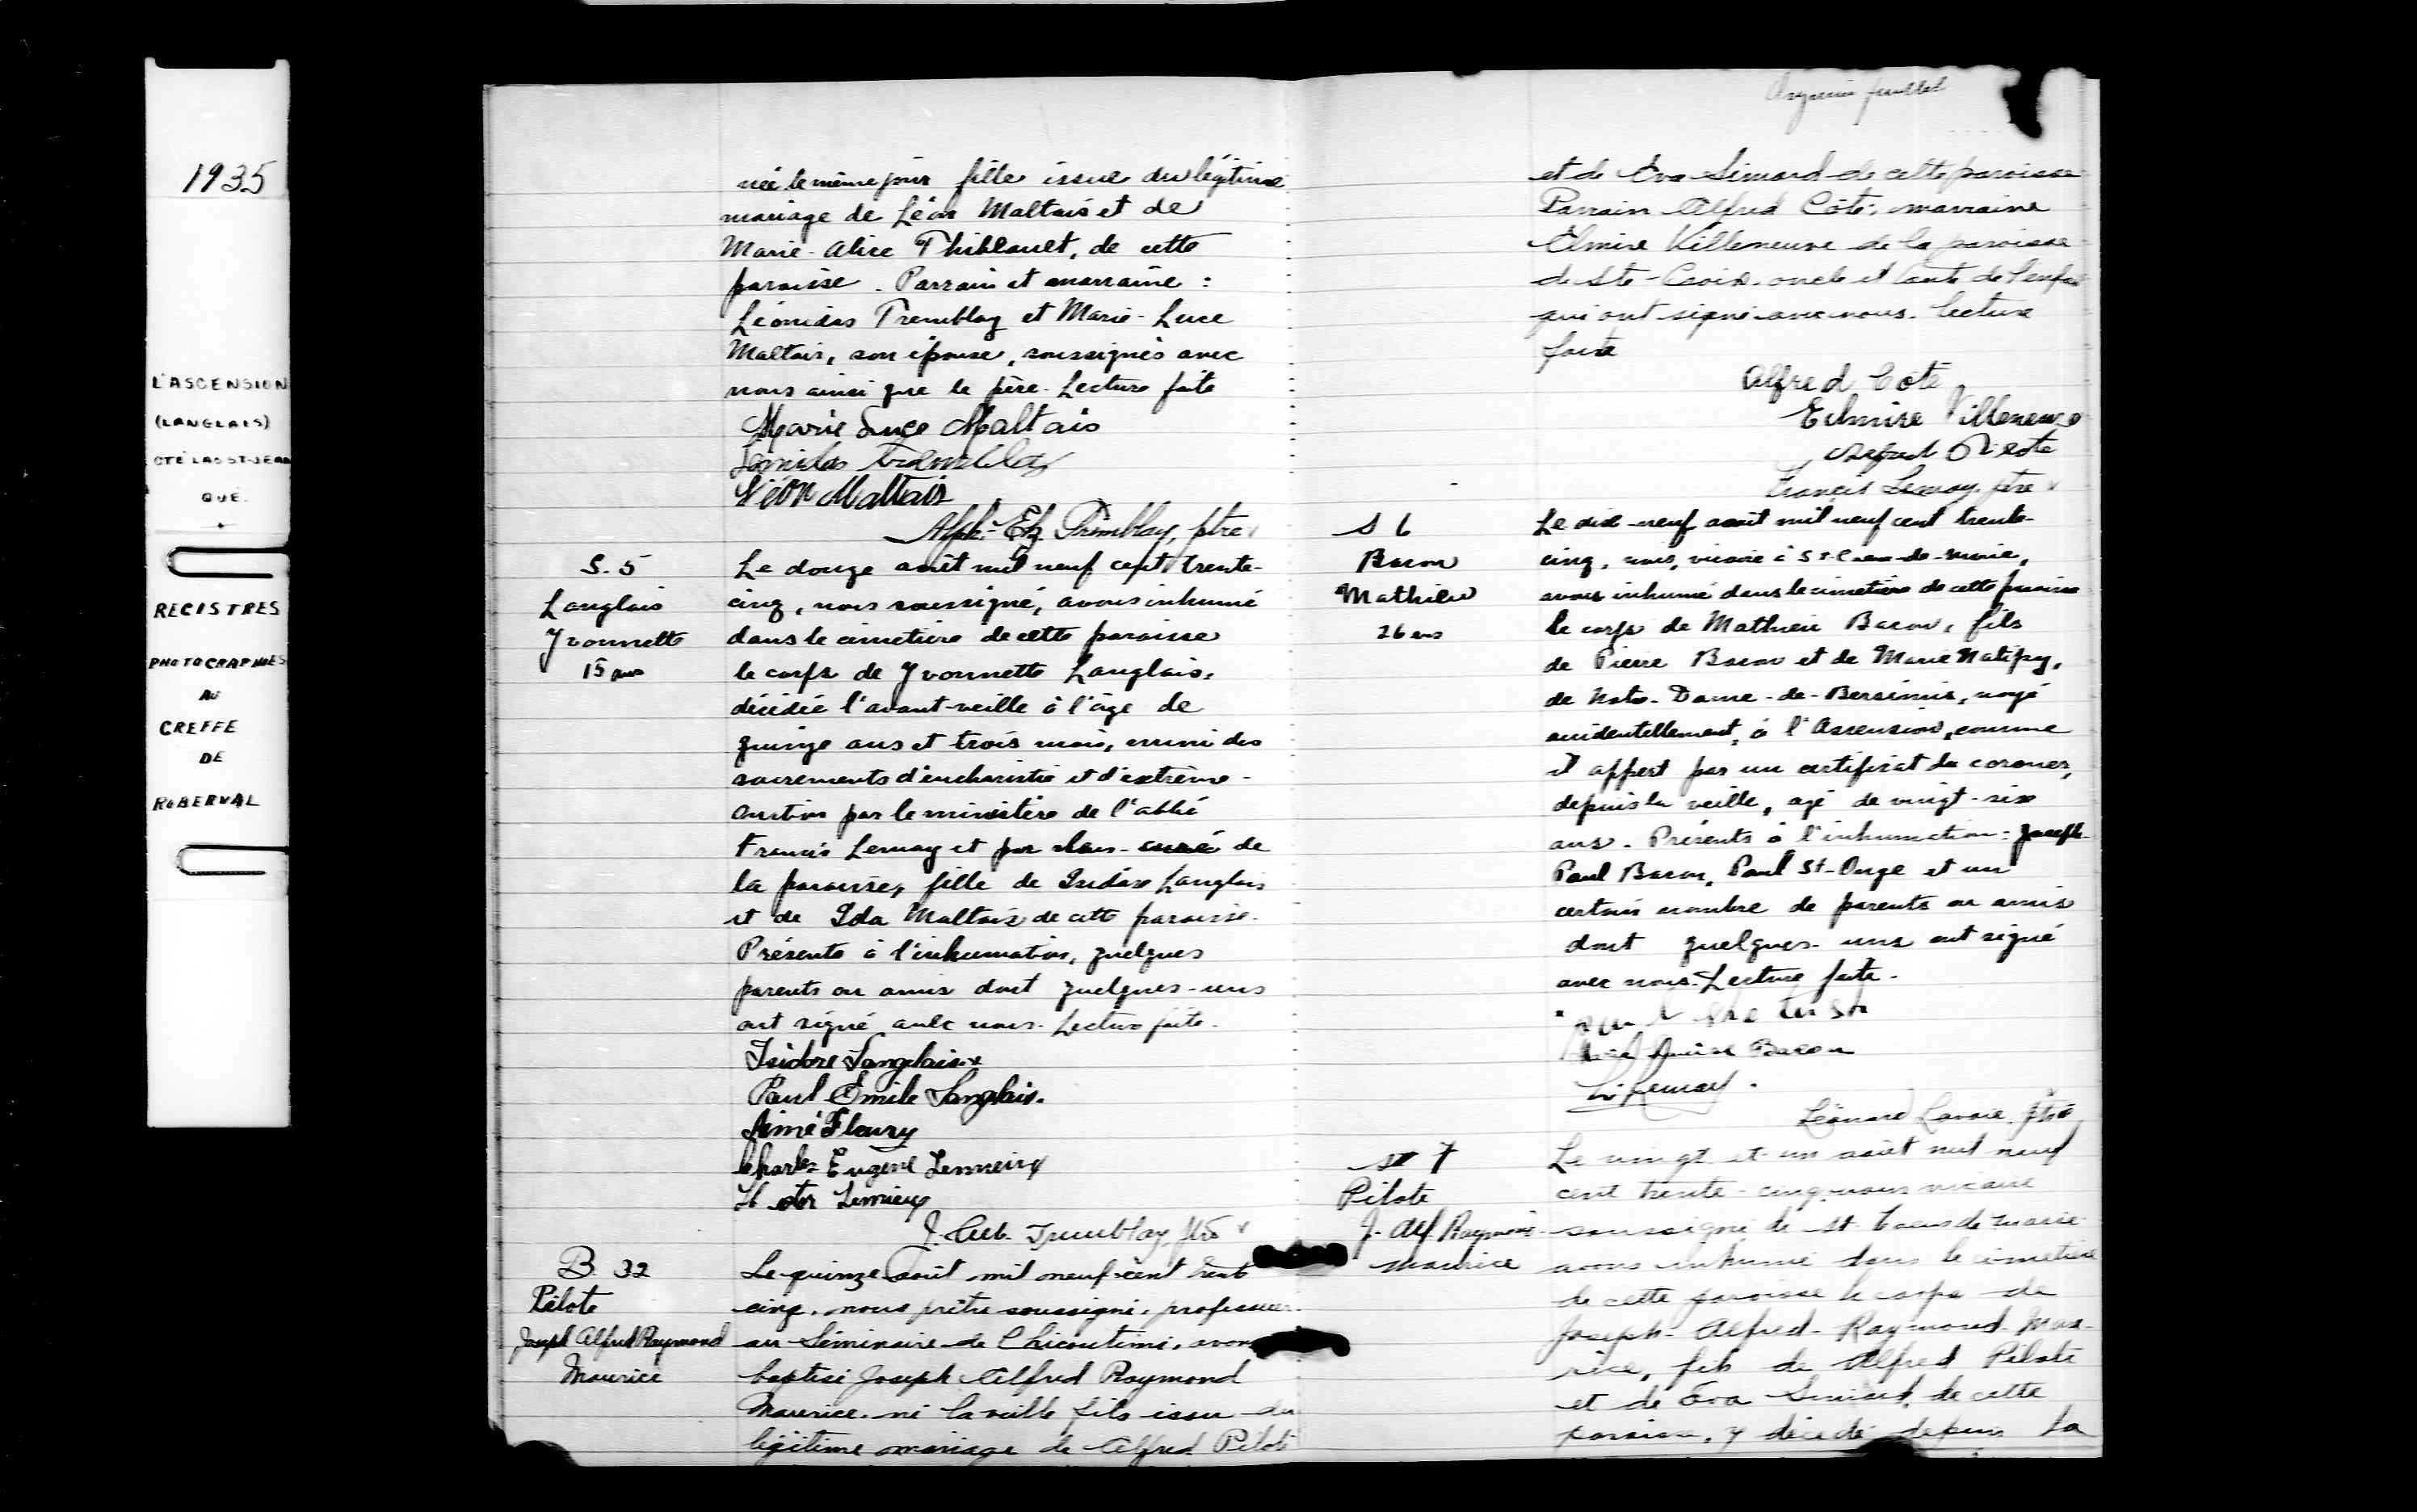 1935
L'ASCENSION
(LANGLAIS)
CTÉ LAC ST-JEAN
QUÉ.
REGISTRES
PHOTOGRAPHIÉS
AU
GREFFE
DE
ROBERVAL
née le même jour fille issue du légitime
mariage de Léon Maltais et de
Marie-Alice Thibeault, de cette
paroisse. Parrain et marraine :
Léonidas Tremblay et Marie-Luce
Maltais, son épouse, soussignés avec
nous ainsi que le père. Lecture faite
Marie Luce Maltais
Léonidas Tremblay
Léon Maltais
Alph-Elz. Tremblay, ptre
S. 5
Langlais
Yvonnette
15 ans
Le douze août mil neuf cent trente-
cinq, nous soussigné, avons inhumé
dans le cimetière de cette paroisse
le corps de Yvonnette Langlais,
décédée l'avant-veille à l'âge de
quinze ans et trois mois, munie des
sacrements d'eucharistie et d'extrême-
onction par le ministère de l'abbé
Francis Lemay et par curé de
la paroisse, fille de Isidore Langlais
et de Ida Maltais de cette paroisse.
Présents à l'inhumation, quelques
parents ou amis dont quelques-uns
ont signé avec nous. Lecture faite.
Isidore Langlais
Paul Emile Langlais.
Aimé Fleury
Charles Eugène Lemieux
Lemieux
J. Tremblay ptre
B. 32
Pilote
Joseph Alfred Raymond
Maurice
Le quinze août mil neuf cent trente
cinq, nous prêtre soussigné, professeur
au Séminaire de Chicoutimi, avons
baptisé Joseph Alfred Raymond
Maurice, né la veille fils issu du
légitime mariage de Alfred Pilote
feuillet
et de Eva Simard de cette paroisse
Parrain Alfred Côté, marraine
Elmire Villeneuve de la paroisse
de Ste-Croix, oncle et tante de l'enfant
qui ont signé avec nous. Lecture
faite
Alfred Côté
Edmire Villeneuve
Alfred Pilote
Francis Lemay, ptre
S 6
Bacon
Mathieu
26 ans
Le dix-neuf août mil neuf cent trente-
cinq, nous, vicaire à St-Coeur-de-Marie,
avons inhumé dans le cimetière de cette paroisse
le corps de Mathieu Bacon, fils
de Pierre Bacon et de Marie Natipy,
de Notre-Dame-de-Bersimis, noyé
accidentellement, à l'Ascension, comme
il appert par un certificat du coroner,
depuis la veille, âgé de vingt-six
ans. Présents à l'inhumation : Joseph-
Paul Bacon, Paul St-Onge et un
certain nombre de parents ou amis
dont quelques-uns ont signé
avec nous. Lecture faite.
Bacon
Lemay.
Léonard Lavoie, ptre
S 7
Pilote
J. Alf. Raymond
Maurice
Le vingt et un août mil neuf
cent trente-cinq nous vicaire
soussigné de St. Coeur de Marie
avons inhumé dans le cimetière
de cette paroisse le corps de
Joseph-Alfred-Raymond-Mau-
rice, fils de Alfred Pilote
et de Eva Simard, de cette
paroisse, y décédé depuis la